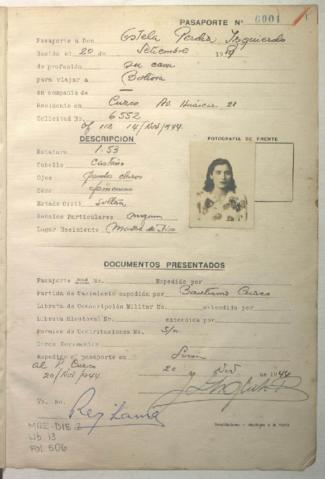 PASAPORTE N° 6001
Pasaporte a Don Estela Perdiz Izquierdo
Nacido el 20 de Setiembre de 19
de profesión su casa
para viajar a Bolivia
en compañía de
Residente en Cuzco Av. Huáscar 21
Solicitud No. 6552
of 112 14/Nov/944
DESCRIPCION
FOTOGRAFIA DE FRENTE
Estatura 1.53
Cabello Castaño
Ojos Pardos claros
Cara
Estado Civil Soltera
Señales Particulares ninguna
Lugar Nacimiento Madre de Dios
DOCUMENTOS PRESENTADOS
Pasaporte No. Expedido por
Partida de Nacimiento expedida por Bautismo Cuzco
Libreta de Conscripción Militar No. extendida por
Libreta Electoral No. extendida por
Patente de Contribuciones No. S/n
Otros Documentos
Expedido el pasaporte en Lima
al P. Cuzco 20 Nov de 1944
20/Nov/944
Vo. Bo.
MRE-DIE-2
Lib. 13
Fol 506